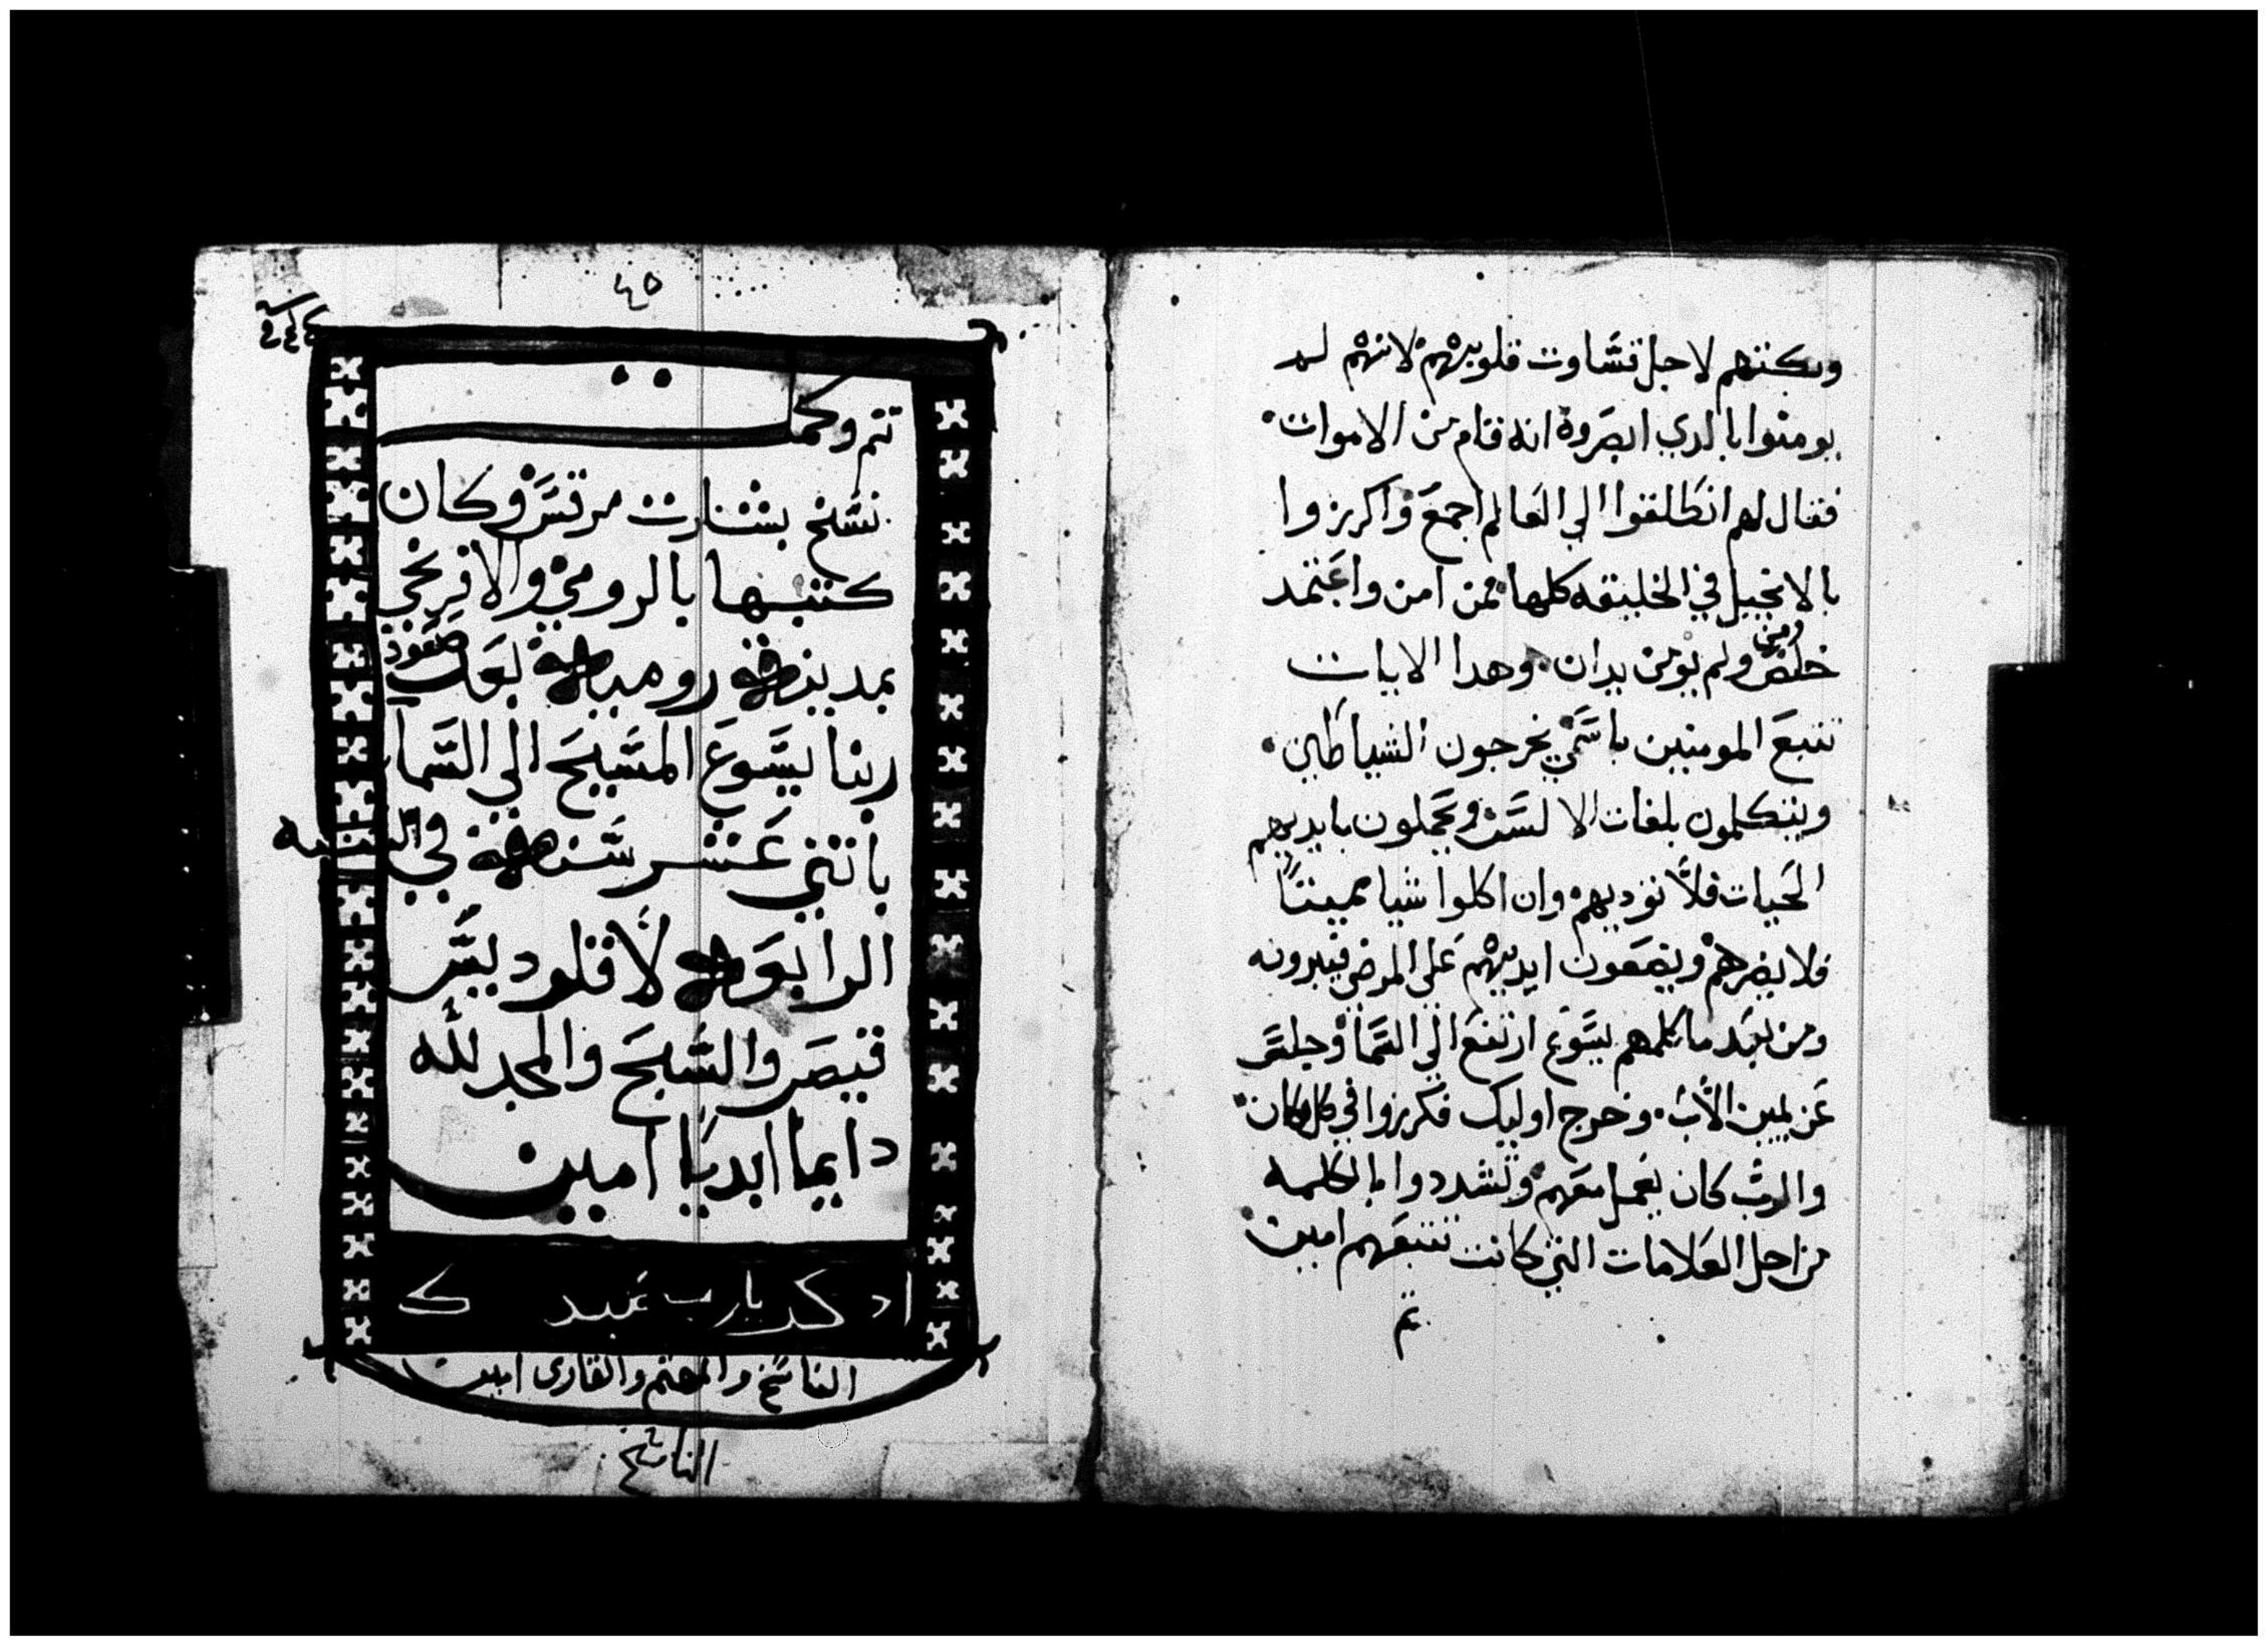 وبكتهم لاجل قساوت قلوبهم لانهم لم
يومنوا بالدي ابصروه انه قام من الاموات
فقال لهم انطلقوا الي العالم اجمع واكرزوا
بالانجيل في الخليقه كلها فمن امن واعتمد
خلص ومن ولم يومن يدان وهدا الايات
تتبع المومنين باسمي يخرجون الشياطين
ويتكلمون بلغات الالسن ويحملون بايديهم
الحيات فلا توديهم وان اكلوا شيا مميتا
فلا يضرهم ويضعون ايديهم علي المرضي فيبرون
ومن بعد ما كلمهم يسوع ارتفع الي السما وجلس
عن يمين الاب وخرج اوليك فكرزوا في كل مكان
والرب كان يعمل معهم وتشددوا بالكلمه
من اجل العلامات التي كانت تتبعهم امين
تم
٤٥
تم وكمل
نسخ بشارت مرقس وكان
كتبها بالرومي والافرنجي
بمدينة رومية بعد صعود
ربنا يسوع المسيح الي السما
باتني عشر سنة في السنه
الرابعة لاقلوديس
قيصر والسبح والمجد لله
دايما ابديا امين
ادكر يارب عبدك
الناسخ والمهتم والقارى امين
الناسخ